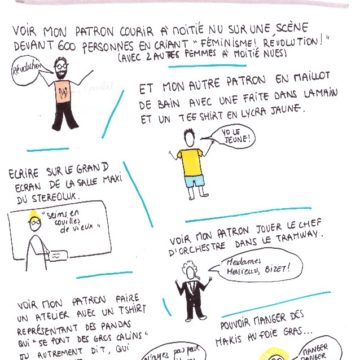 VOIR MON PATRON COURIR A MOITIÉ NU SUR UNE SCÈNE
DEVANT 600 PERSONNES EN CRIANT "FÉMINISME! RÉVOLUTION!"
(AVEC 2 AUTRES FEMMES A MOITIÉ NUES)
Révolution
ET MON AUTRE PATRON EN MAILLOT
DE BAIN AVEC UNE FRITE DANS LA MAIN
ET UN TEE SHIRT EN LYCRA JAUNE.
YO LE
JEUNE!
ECRIRE SUR LE GRAND
ECRAN DE LA SALLE MAXI
DU STEREOLUX.
"seins en
couilles
de vieux"
VOIR MON PATRON JOUER LE CHEF
D'ORCHESTRE DANS LE TRAMWAY.
Mesdames
Messieurs,
BIZET!
VOIR MON PATRON FAIRE
UN ATELIER AVEC UN TSHIRT
REPRÉSENTANT DES PANDAS
QUI "SE FONT DES GROS CALINS"
OU AUTREMENT DIT, QUI
POUVOIR MANGER DES
MAKIS AU FOIE GRAS...
N'ayez pas peur
MANGER
MANGER